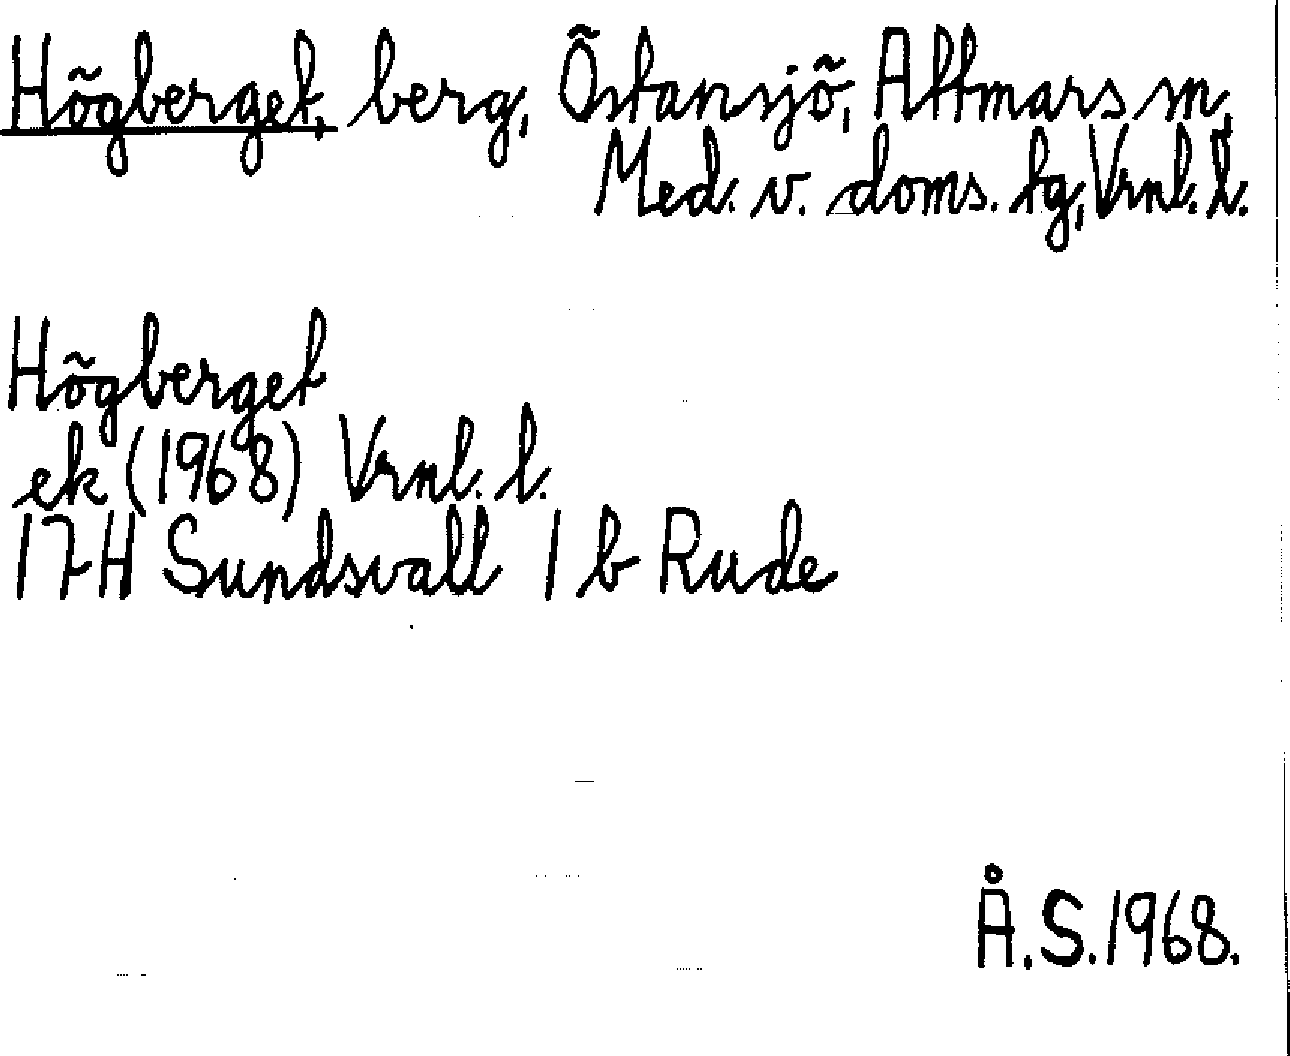 Högberget, berg, Östansjö, Attmars sn,
Med. v. doms. tg, Vrnl. l.
Högberget
ek (1968) Vrnl. l.
17H Sundsvall 1 b Rude
Å.S. 1968.